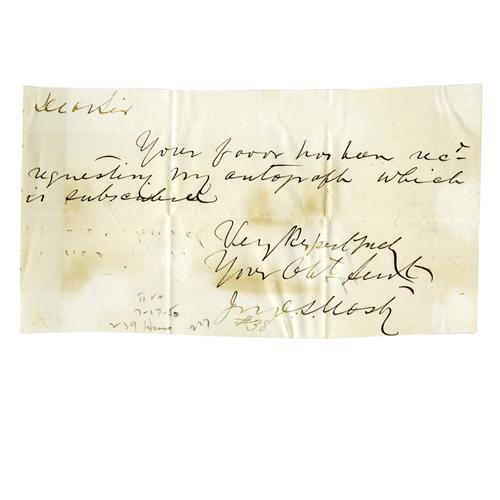 Dear Sir
Your favor has been rec^d
requesting my autograph which
is subscribed
Very Respectfully
Your Obt Servt
Jno. S. Mosby
#38
7-17-50
239